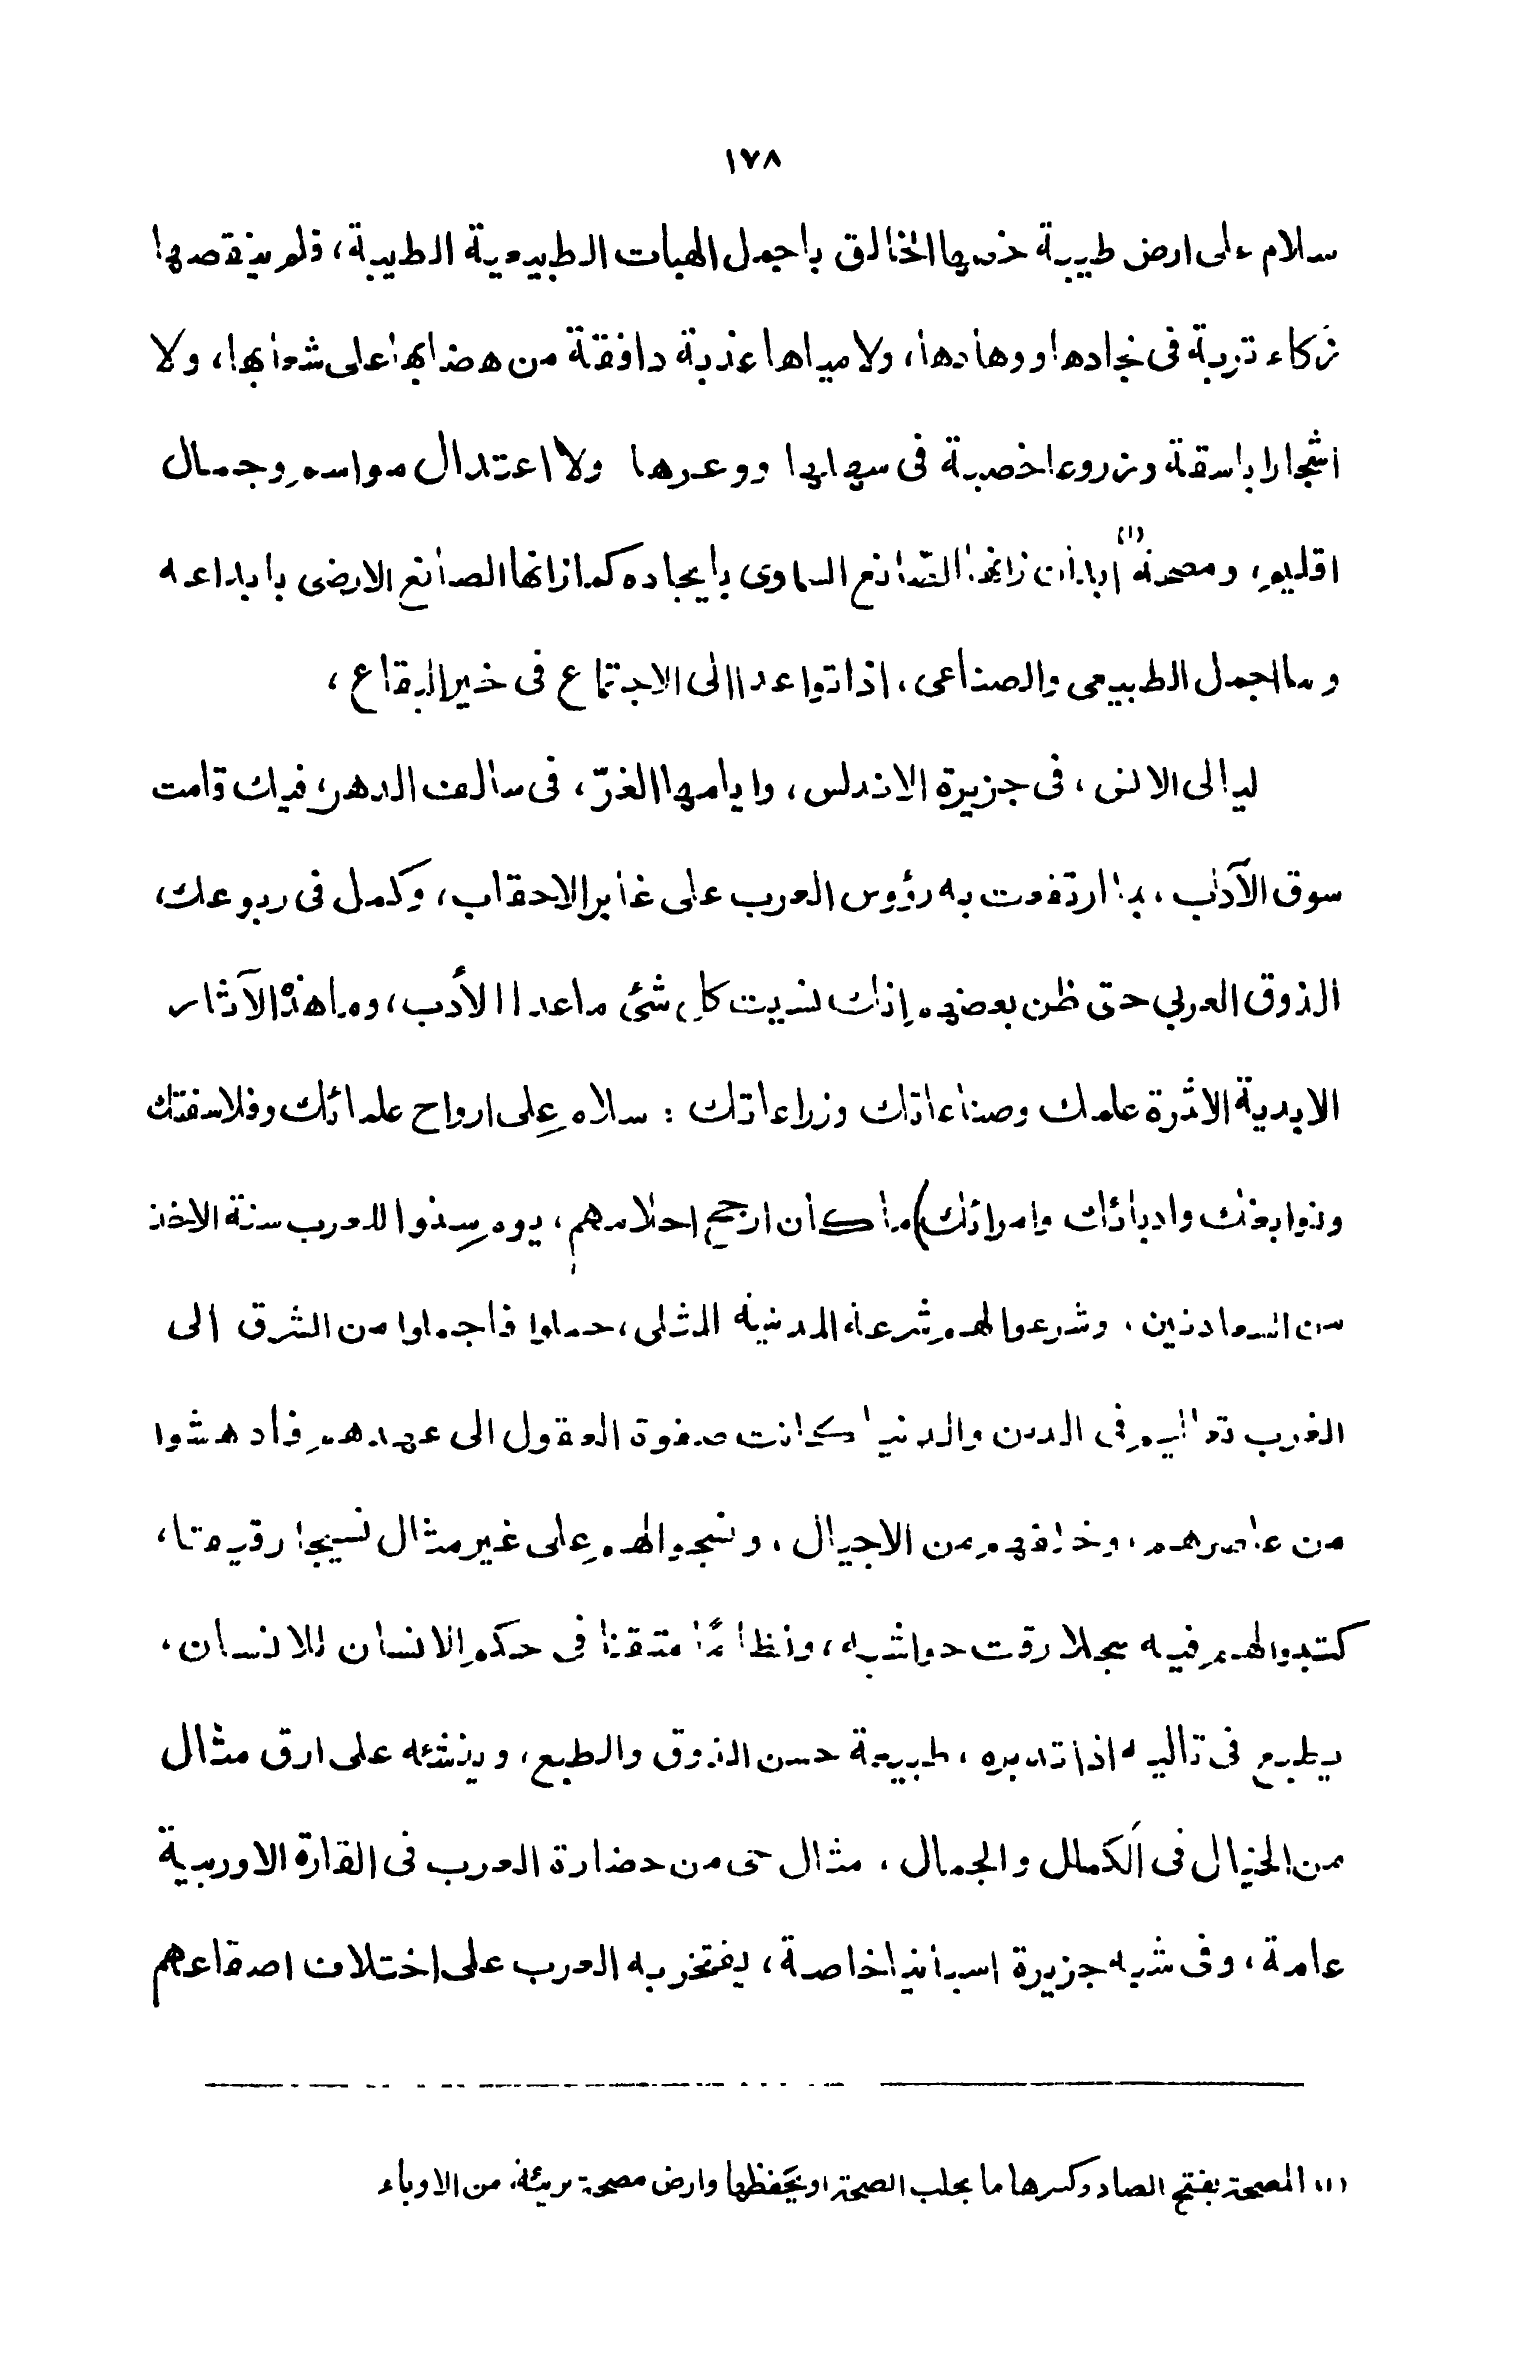 ١٧٨
سلام على ارض طيبة خصها الخالق باجمل الهبات الطبيعية الطيبة، فلم ينقصها
زكاء تربة فى نجادها ووهادها، ولا مياها عذبة دافقة من هضابها على شعابها، ولا
اشجارا باسقة وزروعا خصبة فى سهلها ووعرها ولا اعتدال مواسم وجمال
اقليم، ومصحة (١) ابدان زانها الصّانع السماوى بايجاده كما زانها الصانع الارضى بابداعه
وما اجمل الطبيعى والصناعى، اذا تواعدا الى الاجتماع فى خير البقاع،
ليالى الانس، فى جزيرة الاندلس، وايامها الغرّ، فى سالف الدهر، فيك قامت
سوق الآداب، بما ارتفعت به رؤوس العرب على غابر الاحقاب، وكمل فى ربوعك،
الذوق العربي حتى ظن بعضهم إنك نسيت كل شئ ماعدا الأدب، وما هذه الآثار
الابدية الاثرة علمك وصناعاتك وزراعاتك : سلام على ارواح علمائك وفلاسفتك
ونوابغك وادبائك وامرائك) ما كان ارجح احلامهم، يوم سنوا للعرب سنة الاخذ
من السعادتين، وشرعوا لهم شرعة المدنية المثلى، حملوا فاجملوا من الشرق الى
الغرب تعاليم فى الدين والدنيا كانت صفوة العقول الى عهدهم فأدهشوا
من عاصرهم، وخلفهم من الاجيال، ونسجوا لهم على غير مثال نسيجا رقيقا،
كتبوا لهم فيه سجلا رقت حواشيه، ونظامًا متقنا فى حكم الانسان للانسان،
يطبع فى تاليه اذا تدبره، طبيعة حسن الذوق والطبع، وينشئه على ارق مثال
من الخيال فى الكمال والجمال، مثال حى من حضارة العرب فى القارة الاوربية
عامة، وفى شبه جزيرة اسبانيا خاصة، يفتخر به العرب على اختلاف اصقاعهم
(١) المصحة بفتح الصاد وكسرها ما يجلب الصحة او يحفظها وارض مصحة بريئة، من الاوباء